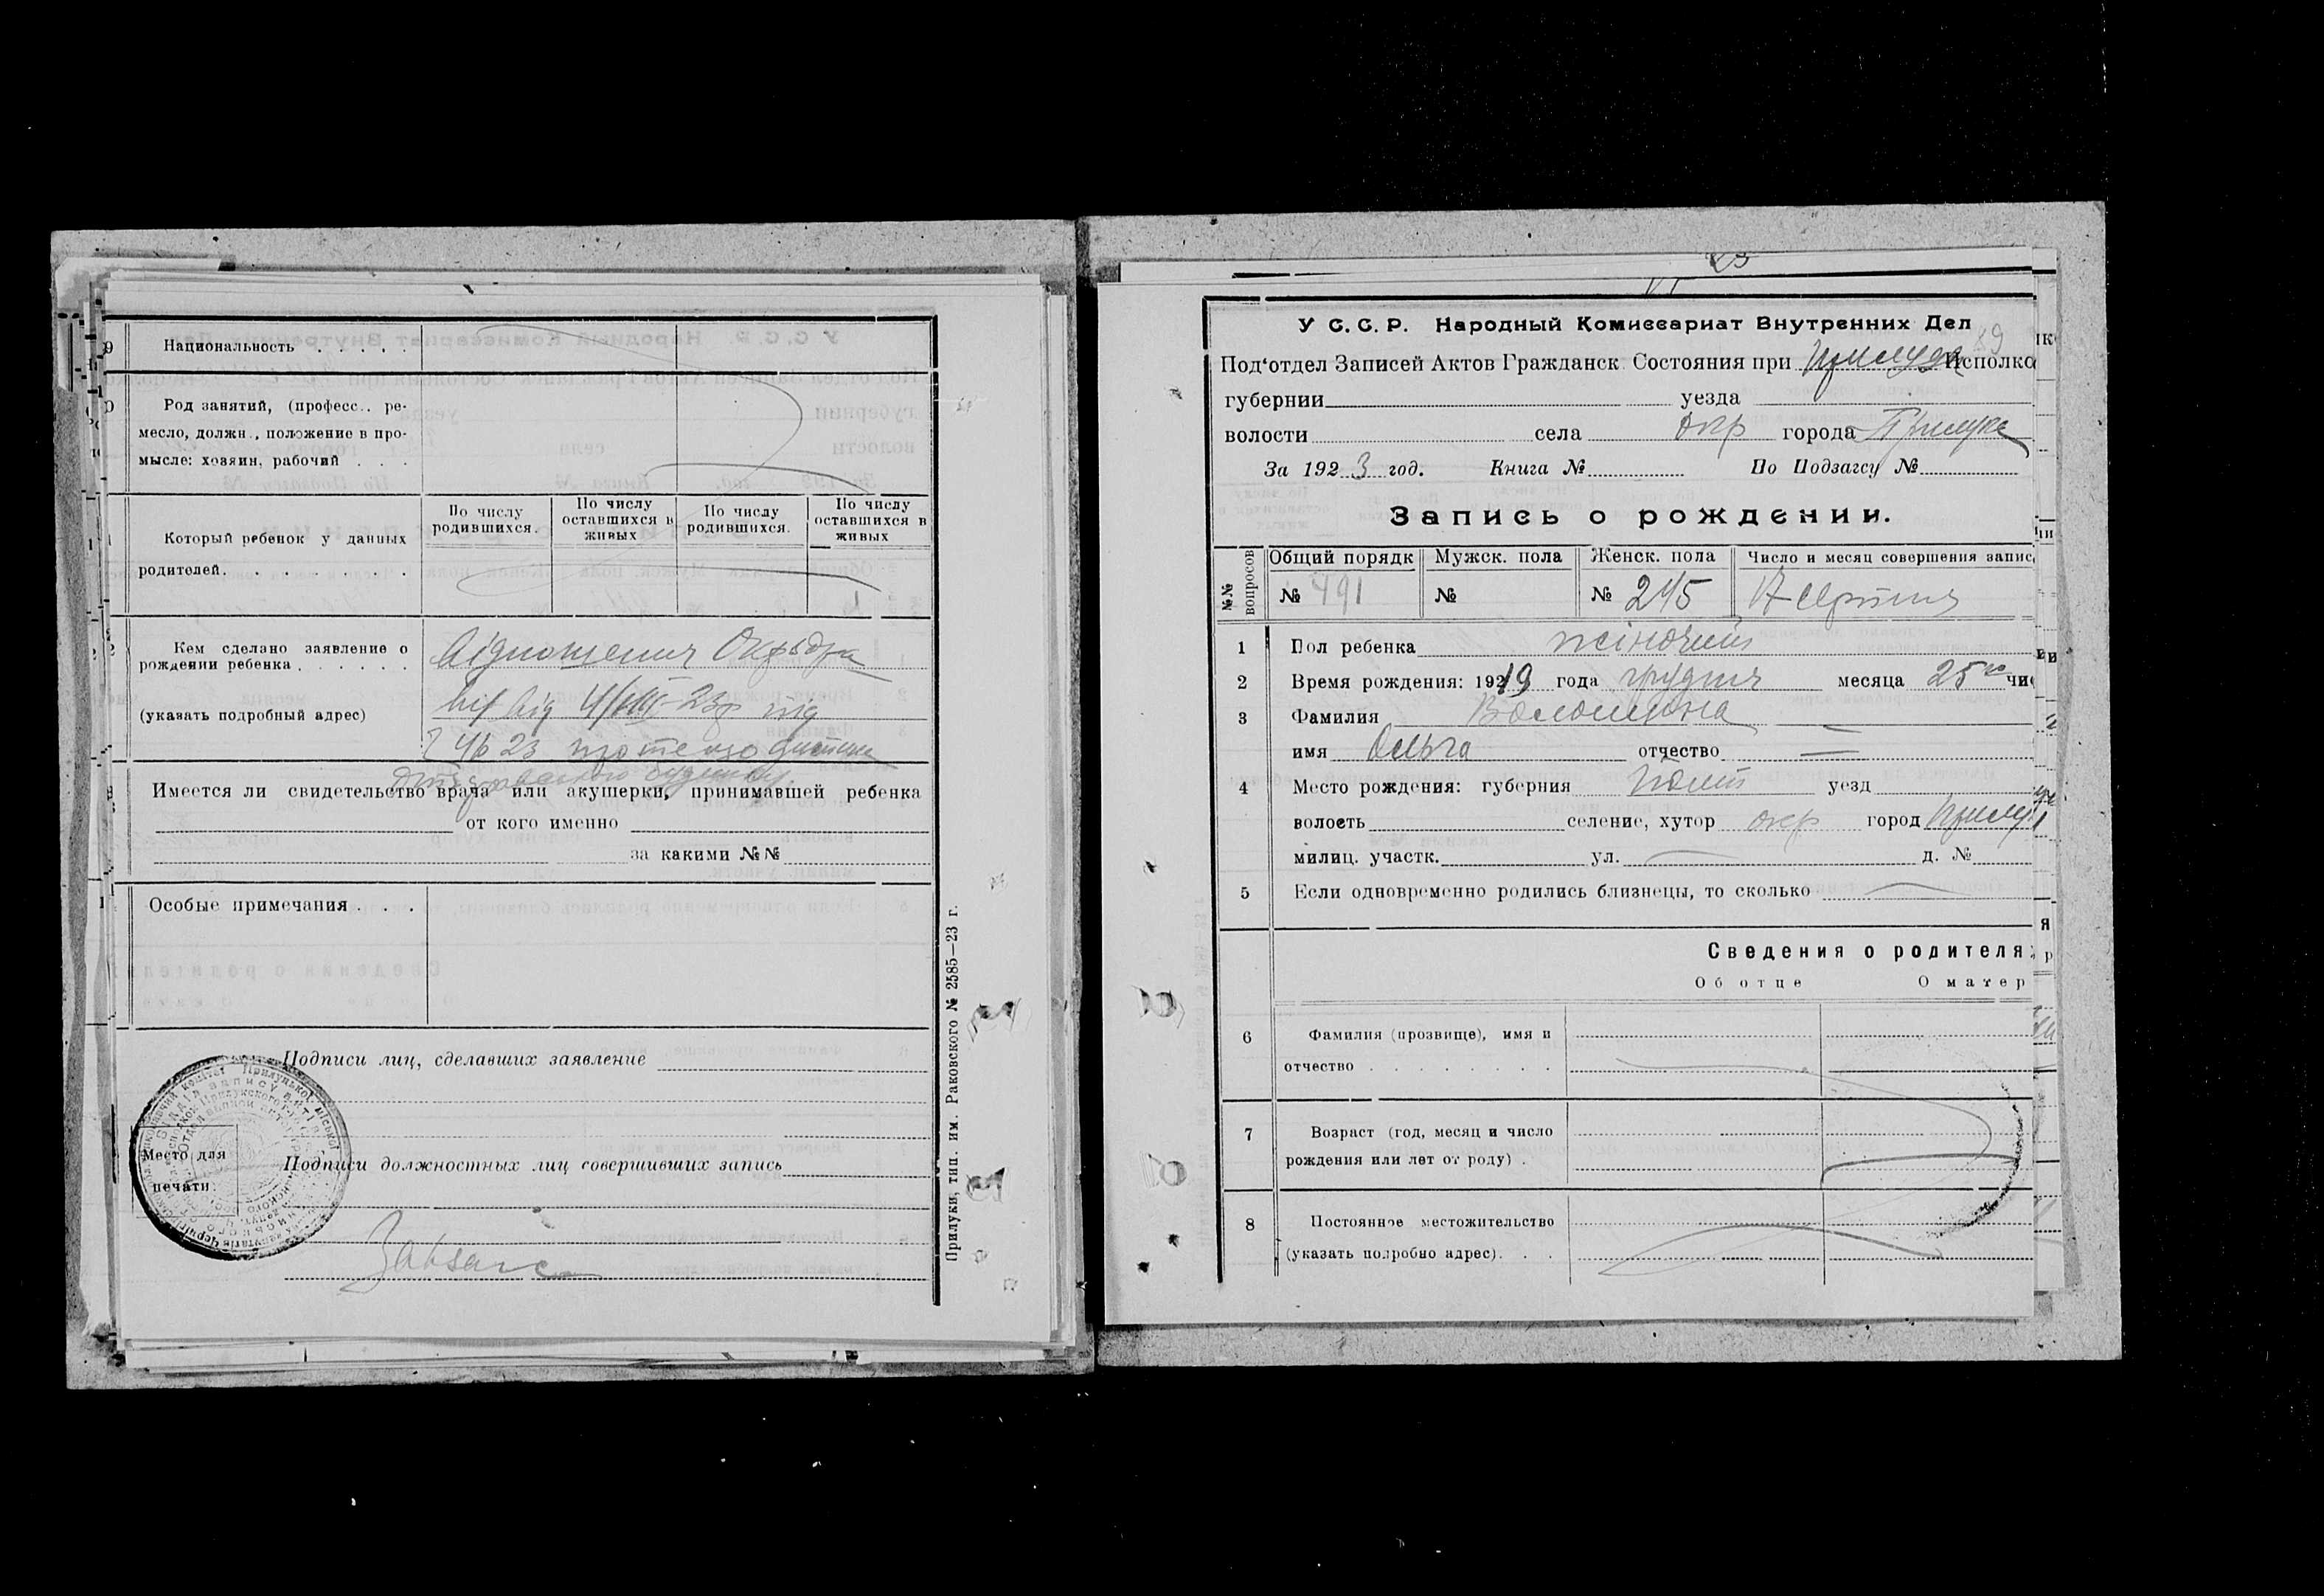 9 Национальность . . . . .
Род занятий, (професс.. ре-
месло, должн., положение в про-
мысле: хозяин, рабочий . . .
Который ребенок у данных
родителей. . . . . . . .
По числу родившихся.
По числу оставшихся в живых
По числу родившихся.
По числу оставшихся в живых
Кем сделано заявление о
рождении ребенка . . . . . .
(указать подробный адрес)
відношення
від 4/VIII-23р під
Имеется ли свидетельство врача или акушерки, принимавшей ребенка
от кого именно
за какими №№
Особые примечания . . .
Подписи лиц, сделавших заявление
Место для
печати.
Подписи должностных лиц совершивших запись
Прилуки, тип. им. Раковского № 2585—23 г.
У С. С. Р. Народный Комиссариат Внутренних Дел
Под‘отдел Записей Актов Гражданск. Состояния при Исполко
губернии уезда
волости села окр города Прилуке
За 192 3 год. Книга № По Подзагсу №
Запись о рождении.
№№ вопросов
Общий порядк Мужск. пола Женск. пола Число и месяц совершения запис
№ 491 № № 245 17 серпня
1 Пол ребенка жіночий
2 Время рождения: 1919 года грудня месяца 25го чис
3 Фамилия Волошина
имя Ольга отчество —
4 Место рождения: губерния Полт уезд
волость селение, хутор окр город Прилу
милиц. участк. ул. — д. №
5 Если одновременно родились близнецы, то сколько —
Сведения о родителя
Об отце О матер
6 Фамилия (прозвище), имя и
отчество . . . . . . . .
7 Возраст (год, месяц и число
рождения или лет от роду) .
8 Постоянное местожительство
(указать подробно адрес). . .